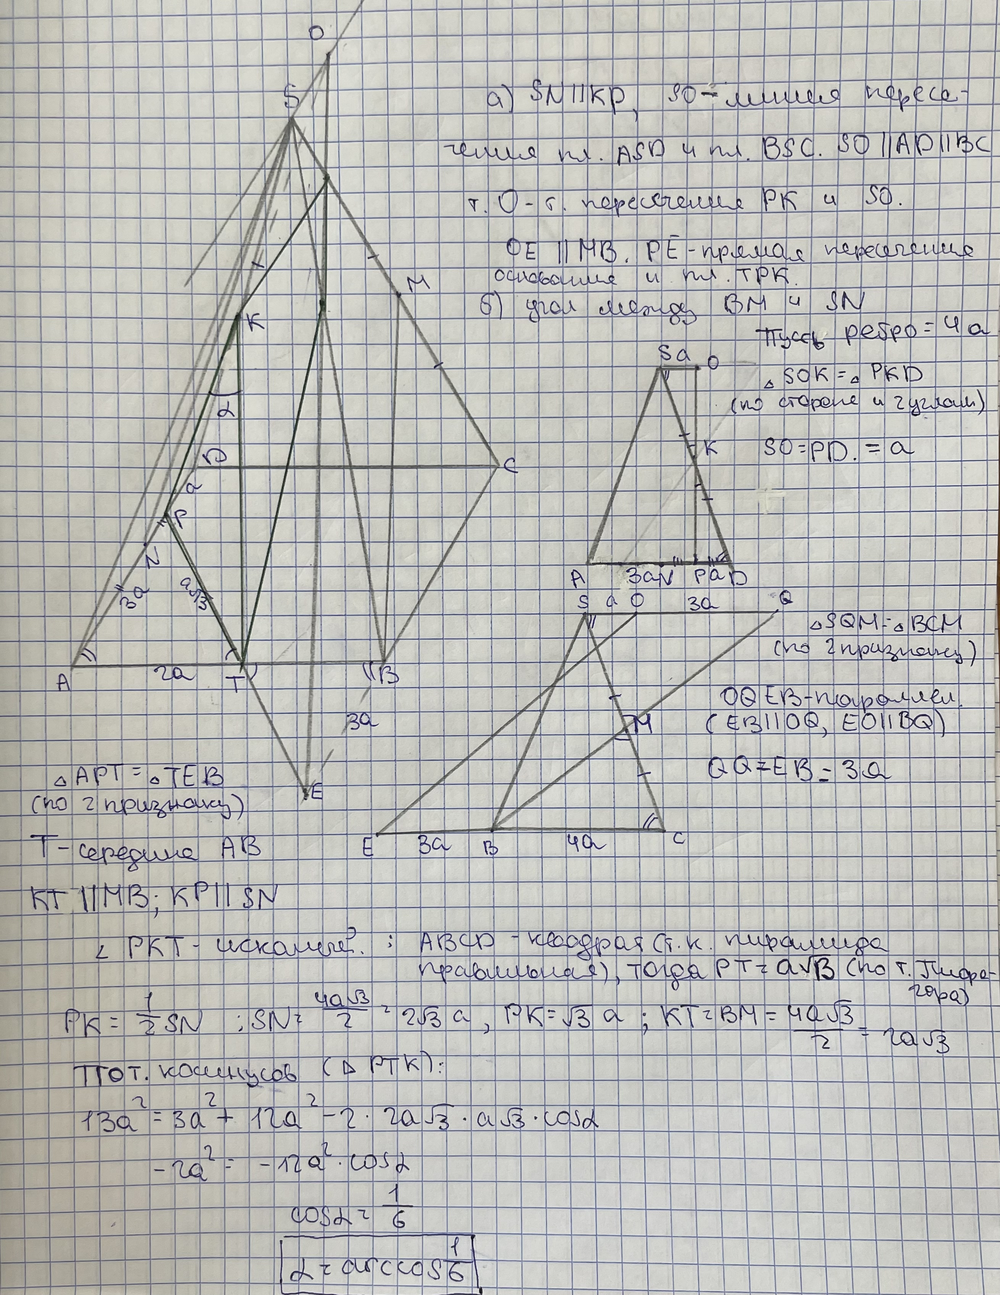 O
S
а) SN||KP, SO – линия пересе-
чения пл. ASD и пл. BSC. SO||AD||BC
т. O – т. пересечения PK и SO.
OE || MB. PE – прямая пересечения
основания и пл. TPK.
б) угол между BM и SN
Пусть ребро = 4a
△SOK = △PKD
(по стороне и 2 углам)
SO = PD. = a
M
K
α
D
C
a
P
N
3a
a√13
A
2a
T
B
3a
E
S a O
K
A 3a N P a D
S a O 3a Q
M
E 3a B 4a C
△SQM = △BCM
(по 2 признаку)
OQEB – параллел.
(EB||OQ, EO||BQ)
OQ = EB = 3a
△APT = △TEB
(по 2 признаку)
T – середина AB
KT || MB; KP || SN
∠ PKT – искомый. : ABCD – квадрат (т.к. пирамида
правильная), тогда PT = a√13 (по т. Пифа-
гора)
PK = 1/2 SN ; SN = 4a√3/2 = 2√3 a, PK = √3 a ; KT = BM = 4a√3/2 = 2a√3
По т. косинусов (△ PTK):
13a² = 3a² + 12a² – 2 · 2a√3 · a√3 · cosα
-2a² = -12a² · cosα
cosα = 1/6
α = arccos 1/6